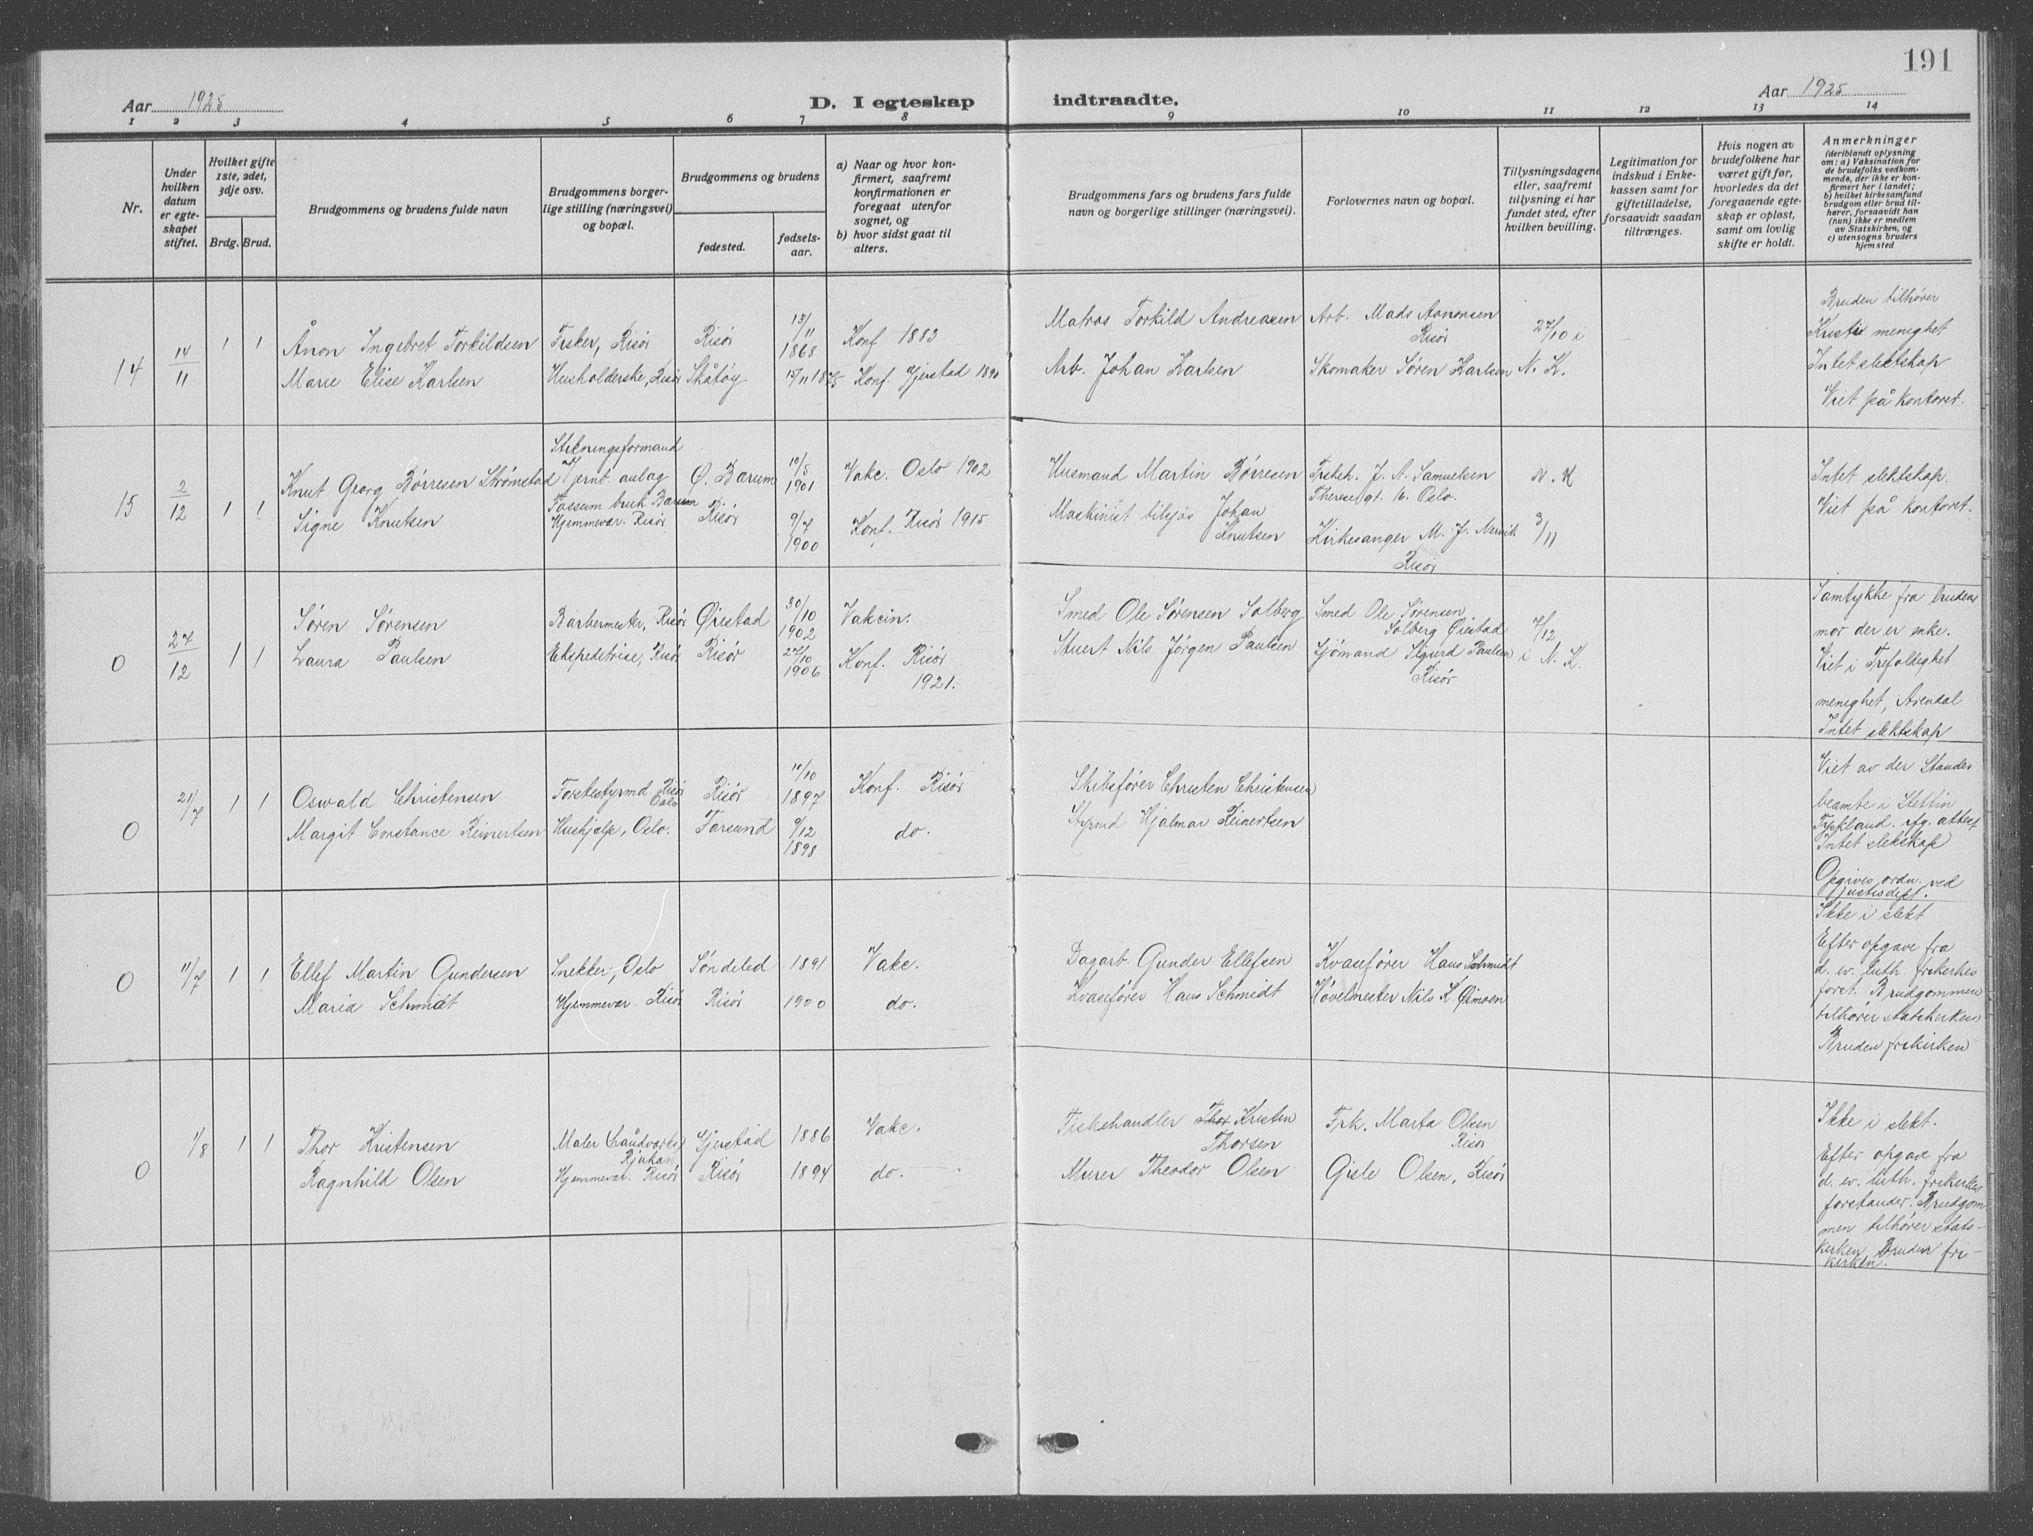 191
Aar 1925
D. I egteskap
indtraadte.
Aar 1925
1 2 3 4 5 6 7 8 9 10 11 12 13 14
Nr.
Under hvilken datum er egteskapet stiftet.
Hvilket gifte 1ste, 2det, 3dje osv.
Brdg. Brud.
Brudgommens og brudens fulde navn
Brudgommens borgerlige stilling (næringsvei) og bopæl.
Brudgommens og brudens
fødested.
fødselsaar.
a) Naar og hvor konfirmert, saafremt konfirmationen er foregaat utenfor sognet, og
b) hvor sidst gaat til alters.
Brudgommens fars og brudens fars fulde navn og borgerlige stillinger (næringsvei).
Forlovernes navn og bopæl.
Tillysningsdagene eller, saafremt tillysning ei har fundet sted, efter hvilken bevilling.
Legitimation for indskud i Enkekassen samt for giftetilladelse, forsaavidt saadan tiltrænges.
Hvis nogen av brudefolkene har været gift før, hvorledes da det foregaaende egteskap er opløst, samt om lovlig skifte er holdt.
Anmerkninger
(deriblandt oplysning om: a) Vaksination for de brudefolks vedkommende, der ikke er konfirmert her i landet; b) hvilket kirkesamfund brudgom eller brud tilhører, forsaavidt han (hun) ikke er medlem av Statskirken, og c) utensogns bruders hjemsted
14
14/11
1 1
Ånon Ingebret Torkildsen
Fisker, Risør
Risør
13/11 1868
Konf 1883
Matros Torkild Andreasen
Arb. Mads Aanonsen
Risør
27/10 i
Bruden tilhører
Kristi menighet
Marie Elise Karlsen
Husholderske, Risør
Skåtøy
15/11 1875
Konf. Gjerstad 1890
Arb. Johan Karlsen
Skomaker Søren Karlsen
N. K.
Intet slektskap
Viet på kontoret.
15
2/12
1 1
Knut Georg Børresen Strømstad
Stikningsformand
v/ Jernb. anlag
Fossum bruk Bærum
Ø. Bærum
10/5 1901
Vakc. Oslo 1902
Husmand Martin Børresen
J. A. Samuelsen
Theresegt. 16. Oslo.
N. K
Intet slektskap.
Viet på kontoret.
Signe Knutsen
Hjemmevær. Risør
Risør
9/7 1900
Konf. Risør 1915
Maskinist tilsjøs Johan
Knutsen
Kirkesanger M. J. Nervik
Risør
3/11
0
27/12
1 1
Søren Sørensen
Barbermester, Risør
Øiestad
30/10 1902
Vakcin.
Smed Ole Sørensen Solberg
Smed Ole Sørensen
Solberg Øiestad
7/12
Samtykke fra brudens
mor der er enke.
Laura Paulsen
Ekspeditrise, Risør
Risør
27/10 1906
Konf. Risør
1921.
Stuert Nils Jørgen Paulsen
Sjømand Sigurd Paulsen
Risør
i N. K.
Viet i Trefoldighet
menighet, Arendal
Intet slektskap
0
21/7
1 1
Oswald Christensen
Førstestyrmd Risør
Oslo
Risør
10/10 1897
Konf. Risør
Skibsfører Christen Christensen
Viet av der Standes
beamte i Stettin
Tyskland. ifg. attest
Intet slektskap
Margit Constance Reinertsen
Hushjelp, Oslo.
Farsund
9/12 1898
do.
Styrmd Hjalmar Reinertsen
Opgives ordn. ved
justisdept.
0
11/7
1 1
Ellef Martin Gundersen
Snekker, Oslo
Søndeled
1891
Vakc.
Dagarb. Gunder Ellefsen
Kvasefører Hans Schmidt
Ikke i slekt
Efter opgave fra
d. ev. luth. frikirkes
forst. Brudgommen
tilhører statskirken
Bruden frikirken
Maria Schmidt
Hjemmevær. Risør
Risør
1900
do.
Kvasefører Hans Schmidt
Høvelmester Nils K. Simonsen
0
1/8
1 1
Thor Kristensen
Maler
Rjukan
Gjerstad
1886
Vakc.
Fiskehandler Thor Kristen
Thorsen
Frk. Marta Olsen
Risør
Ikke i slekt.
Efter opgave fra
d. ev. luth. frikirkes
forstander. Brudgom-
men tilhører stats-
kirken Bruden fri-
kirken.
Ragnhild Olsen
Hjemmevær. Risør
Risør
1894
do.
Murer Theodor Olsen
Gisle Olsen, Risør